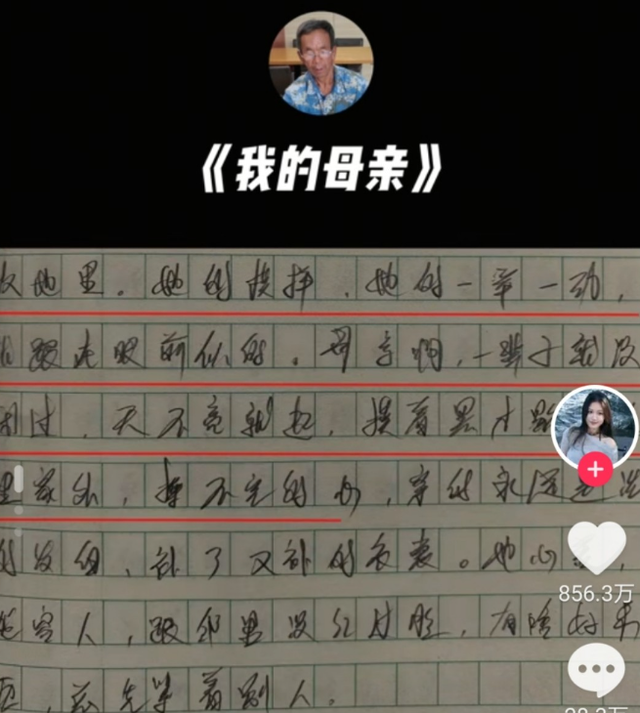 《我的母亲》
地里。她的模样,她的一举一动,
跟在眼前似的。母亲啊,一辈子就没
过,天不亮就起 摸着黑才
里家外,操不完的心,穿的永远是洗
的发白,补了又补的衣裳。她心
容人,跟邻里没红过脸,有啥好东
先紧着别人.
856.3万